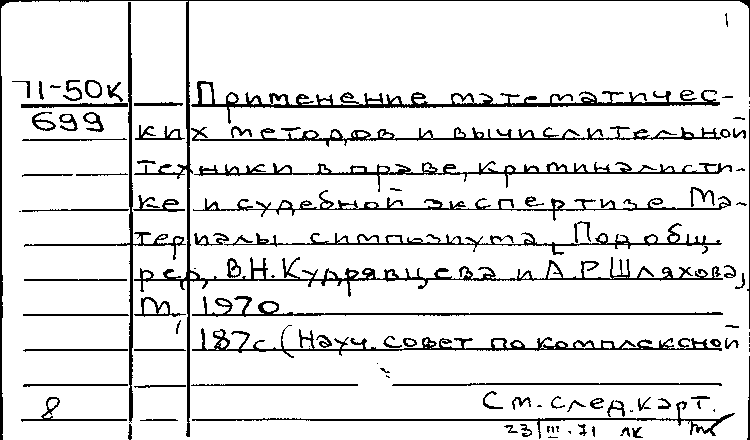 1
71-50к Применение математичес-
699 ких методов и вычислительной
техники в праве, криминалисти-
ке и судебной экспертизе. Ма-
териалы симпозиума. [Под общ.
ред. В.Н. Кудрявцева и А.Р. Шляхова],
М., 1970.
187с. (Науч. совет по комплексной
8 См. след. карт.
23/III-71 лк